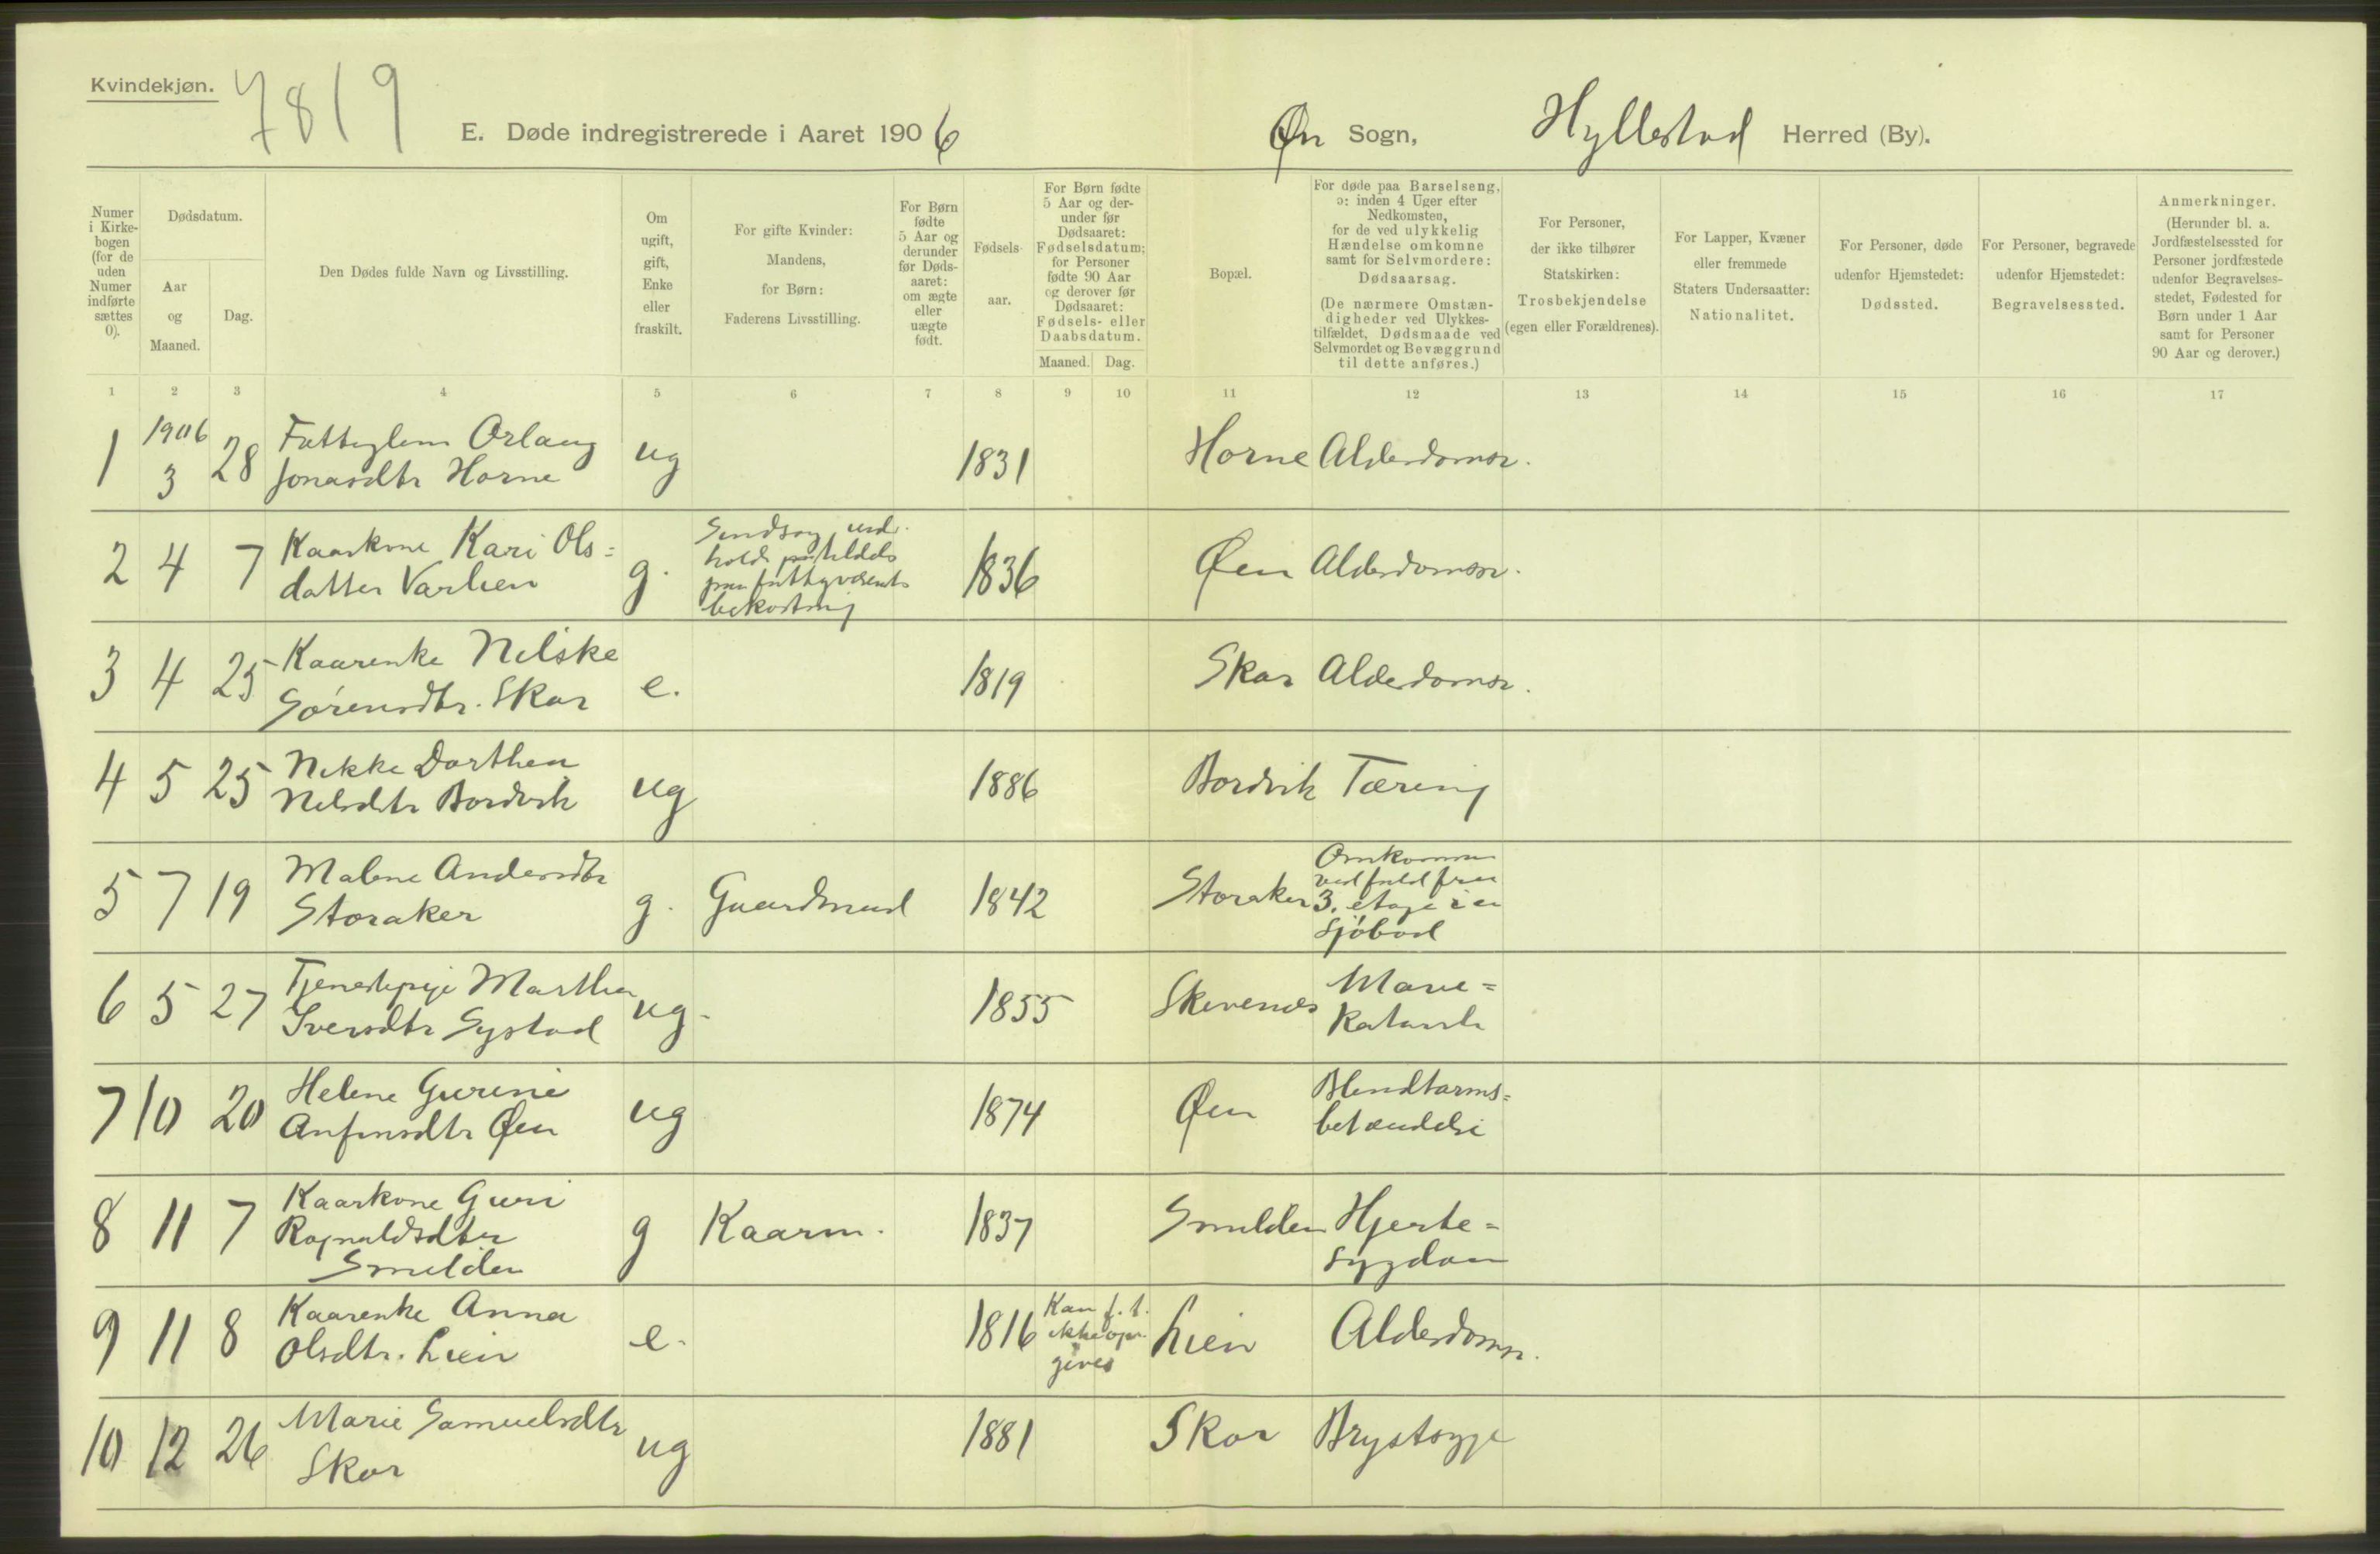 Kvindekjøn.
7819
E. Døde indregistrerede i Aaret 1906
Øn Sogn, Hyllestad Herred (By).
Numer
i Kirke-
bogen
(for de
uden
Numer
indførte
sættes
0).
Dødsdatum.
Aar
og
Maaned.
Dag.
Den Dødes fulde Navn og Livsstilling.
Om
ugift,
gift,
Enke
eller
fraskilt.
For gifte Kvinder:
Mandens,
for Børn:
Faderens Livsstilling.
For Børn
fødte
5 Aar og
derunder
før Døds-
aaret:
om ægte
eller
uægte
født.
Fødsels-
aar.
For Børn fødte
5 Aar og der-
under før
Dødsaaret:
Fødselsdatum;
for Personer
fødte 90 Aar
og derover før
Dødsaaret:
Fødsels- eller
Daabsdatum.
Maaned. Dag.
Bopæl.
For døde paa Barselseng,
ɔ: inden 4 Uger efter
Nedkomsten,
for de ved ulykkelig
Hændelse omkomne
samt for Selvmordere:
Dødsaarsag.
(De nærmere Omstæn-
digheder ved Ulykkes-
tilfældet, Dødsmaade ved
Selvmordet og Bevæggrund
til dette anføres.)
For Personer,
der ikke tilhører
Statskirken:
Trosbekjendelse
(egen eller Forældrenes).
For Lapper, Kvæner
eller fremmede
Staters Undersaatter:
Nationalitet.
For Personer, døde
udenfor Hjemstedet:
Dødssted.
For Personer, begravede
udenfor Hjemstedet:
Begravelsessted.
Anmerkninger.
(Herunder bl. a.
Jordfæstelsessted for
Personer jordfæstede
udenfor Begravelses-
stedet, Fødested for
Børn under 1 Aar
samt for Personer
90 Aar og derover.)
1 2 3 4 5 6 7 8 9 10 11 12 13 14 15 16 17
1 1906 3 28 Fattiglem Orlaug
Jonasdtr Horne
ug 1831 Horne Alderdomsv.
2 4 7 Kaarkone Kari Ols=
datter Varlien
g.
Sindssyg, und.
holdt
paa fattigvæsents
bekostning
1836 Øen Alderdomsv.
3 4 25 Kaarenke Nilske
Sørensdtr. Skar
e. 1819 Skar Alderdomsv.
4 5 25 Nikke Dorthea
Nilsdtr Bordvik
ug 1886 Bordvik Tæring
5 7 19 Malene Andersdtr
Storaker
g. Gaardmand 1842 Storaker
Omkommen
ved fald fra
3. etage i en
Sjöbod
6 5 27 Tjenestepige Martha
Iversdtr Systad
ug. 1855 Skivenes
Mave=
katarrh
7 10 20 Helene Gurine
Anfinsdtr Øen
ug 1874 Øen
Blindtarms=
betændelse
8 11 7 Kaarkone Guri
Ragnaldsdtr
Smilden
g Kaarm. 1837 Smilden
Hjerte=
sygdom
9 11 8 Kaarenke Anna
Olsdtr. Lien
e. 1816
Kan f. t.
ikke op-
gives
Lien Alderdomsv.
10 12 26 Marie Samuelsdtr
Skor
ug 1881 Skor Brystsyge